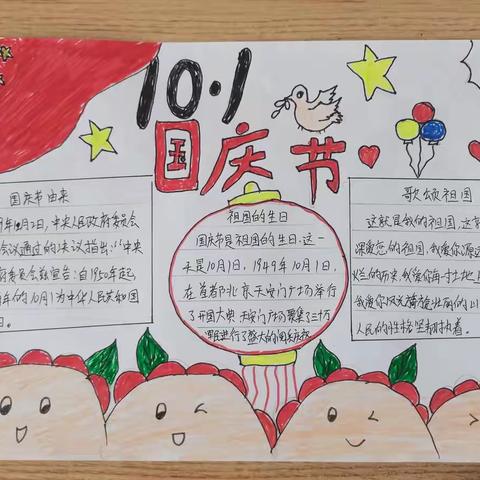 10.1
国庆节
国庆节由来
9年12月2日,中央人民政府委员会
会议通过的决议指出:"中央
府委员会宣告:自1950年起
年的10月1为中华人民共和国
日。
祖国的生日
国庆节是祖国的生日.这一
天是10月1日,1949年10月1日,
在首都北京天安门广场举行
了开国大典.天安门广场聚集了三十万
军民进行了盛大的阅兵庆
歌颂祖国
这就是我的祖国,这
深爱您的祖国,我爱你源远
烂的历史,我爱你每寸土地
我爱你风光旖旎壮丽的山
人民的性格坚韧执着.